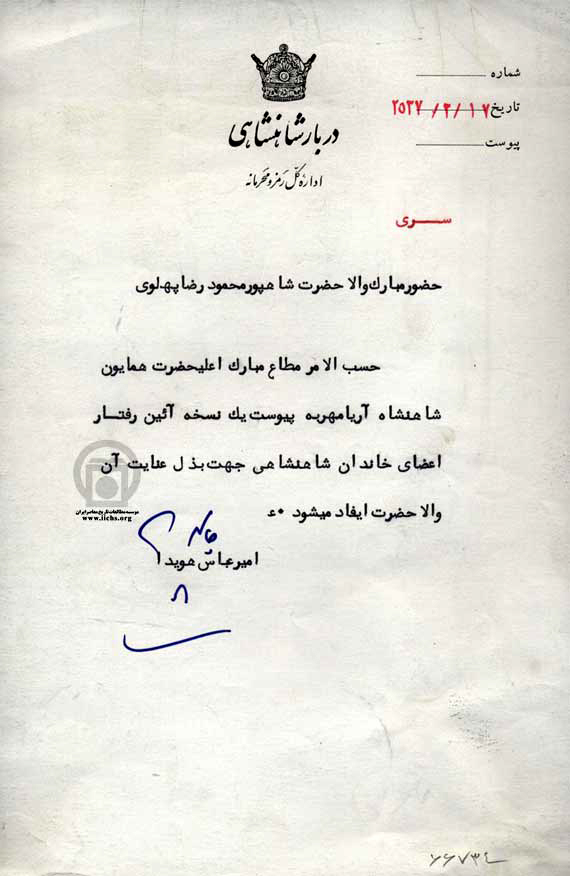 شماره
تاریخ ۲۵۳۷/۳/۱۷
پیوست
دربار شاهنشاهی
اداره کل رمز و محرمانه
سـری
حضور مبارک والا حضرت شاهپور محمود رضا پهلوی
حسب الامر مطاع مبارک اعلیحضرت همایون
شاهنشاه آریامهر به پیوست یک نسخه آئین رفتـار
اعضای خاندان شاهنشاهی جهت بذل عنایت آن
والا حضرت ایفاد میشود ۰ء
امیرعباس هویدا
موسسه مطالعات تاریخ معاصر ایران
www.iichs.org